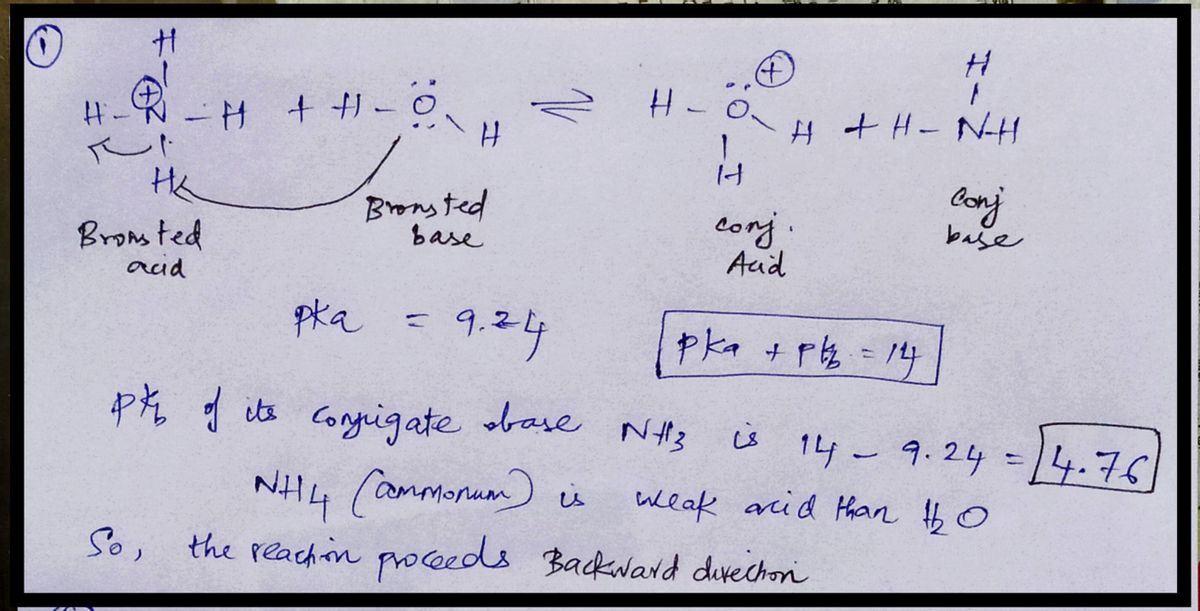 ①
H
H-N⊕-H + H-Ö: H ⇌ H-Ö⊕ H + H-N-H
H H H
Bronsted acid
Bronsted base
conj. Acid
Conj base
pka = 9.24
pka + pkb = 14
pkb of its conjigate base NH3 is 14 - 9.24 = 4.76
NH4 (ammonum) is weak acid than H2O
So, the reaction proceeds Backward direction